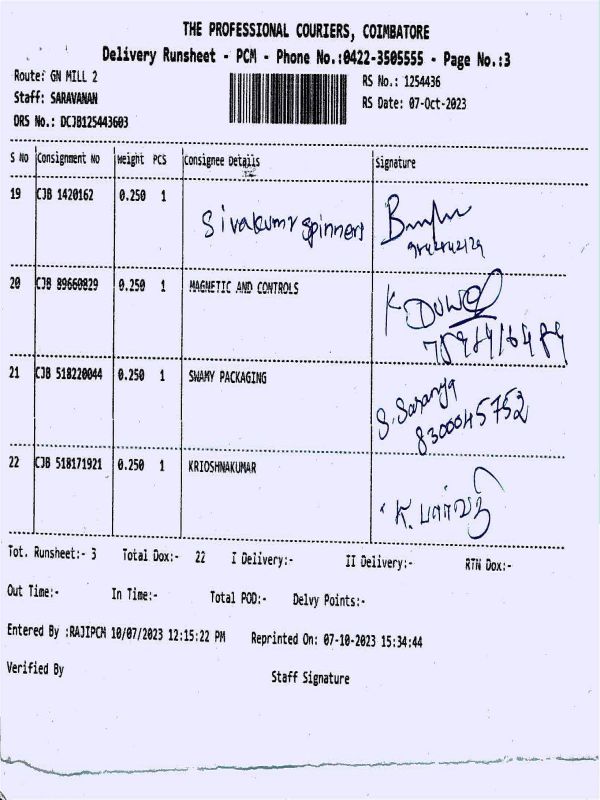 THE PROFESSIONAL COURIERS, COIMBATORE
Delivery Runsheet - PCM - Phone No.:0422-3505555 - Page No.:3
Route: GN MILL 2 RS No.: 1254436
Staff: SARAVANAN RS Date: 07-Oct-2023
DRS No.: DCJB125443603
S NO Consignment NO Weight PCS Consignee Details Signature
19 CJB 1420162 0.250 1 Sivakumr spinners
20 CJB 89660829 0.250 1 MAGNETIC AND CONTROLS K
21 CJB 518220044 0.250 1 SWAMY PACKAGING S. Saranya
8300045752
22 CJB 518171921 0.250 1 KRIOSHNAKUMAR K. பார்வதி
Tot. Runsheet:- 3 Total Dox:- 22 I Delivery:- II Delivery:- RTN Dox:-
Out Time:- In Time:- Total POD:- Delvy Points:-
Entered By :RAJIPCM 10/07/2023 12:15:22 PM Reprinted On: 07-10-2023 15:34:44
Verified By Staff Signature